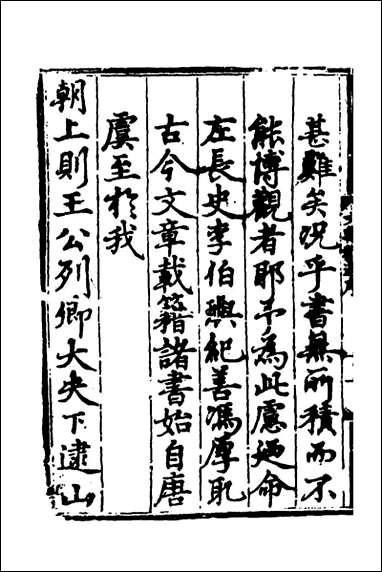 甚難矣況乎書無所積而不
能博觀者耶予為此慮廼命
左長史李伯璵紀善馮厚取
古今文章載籍諸書始自唐
虞至於我
朝上則王公列卿大夫下逮山